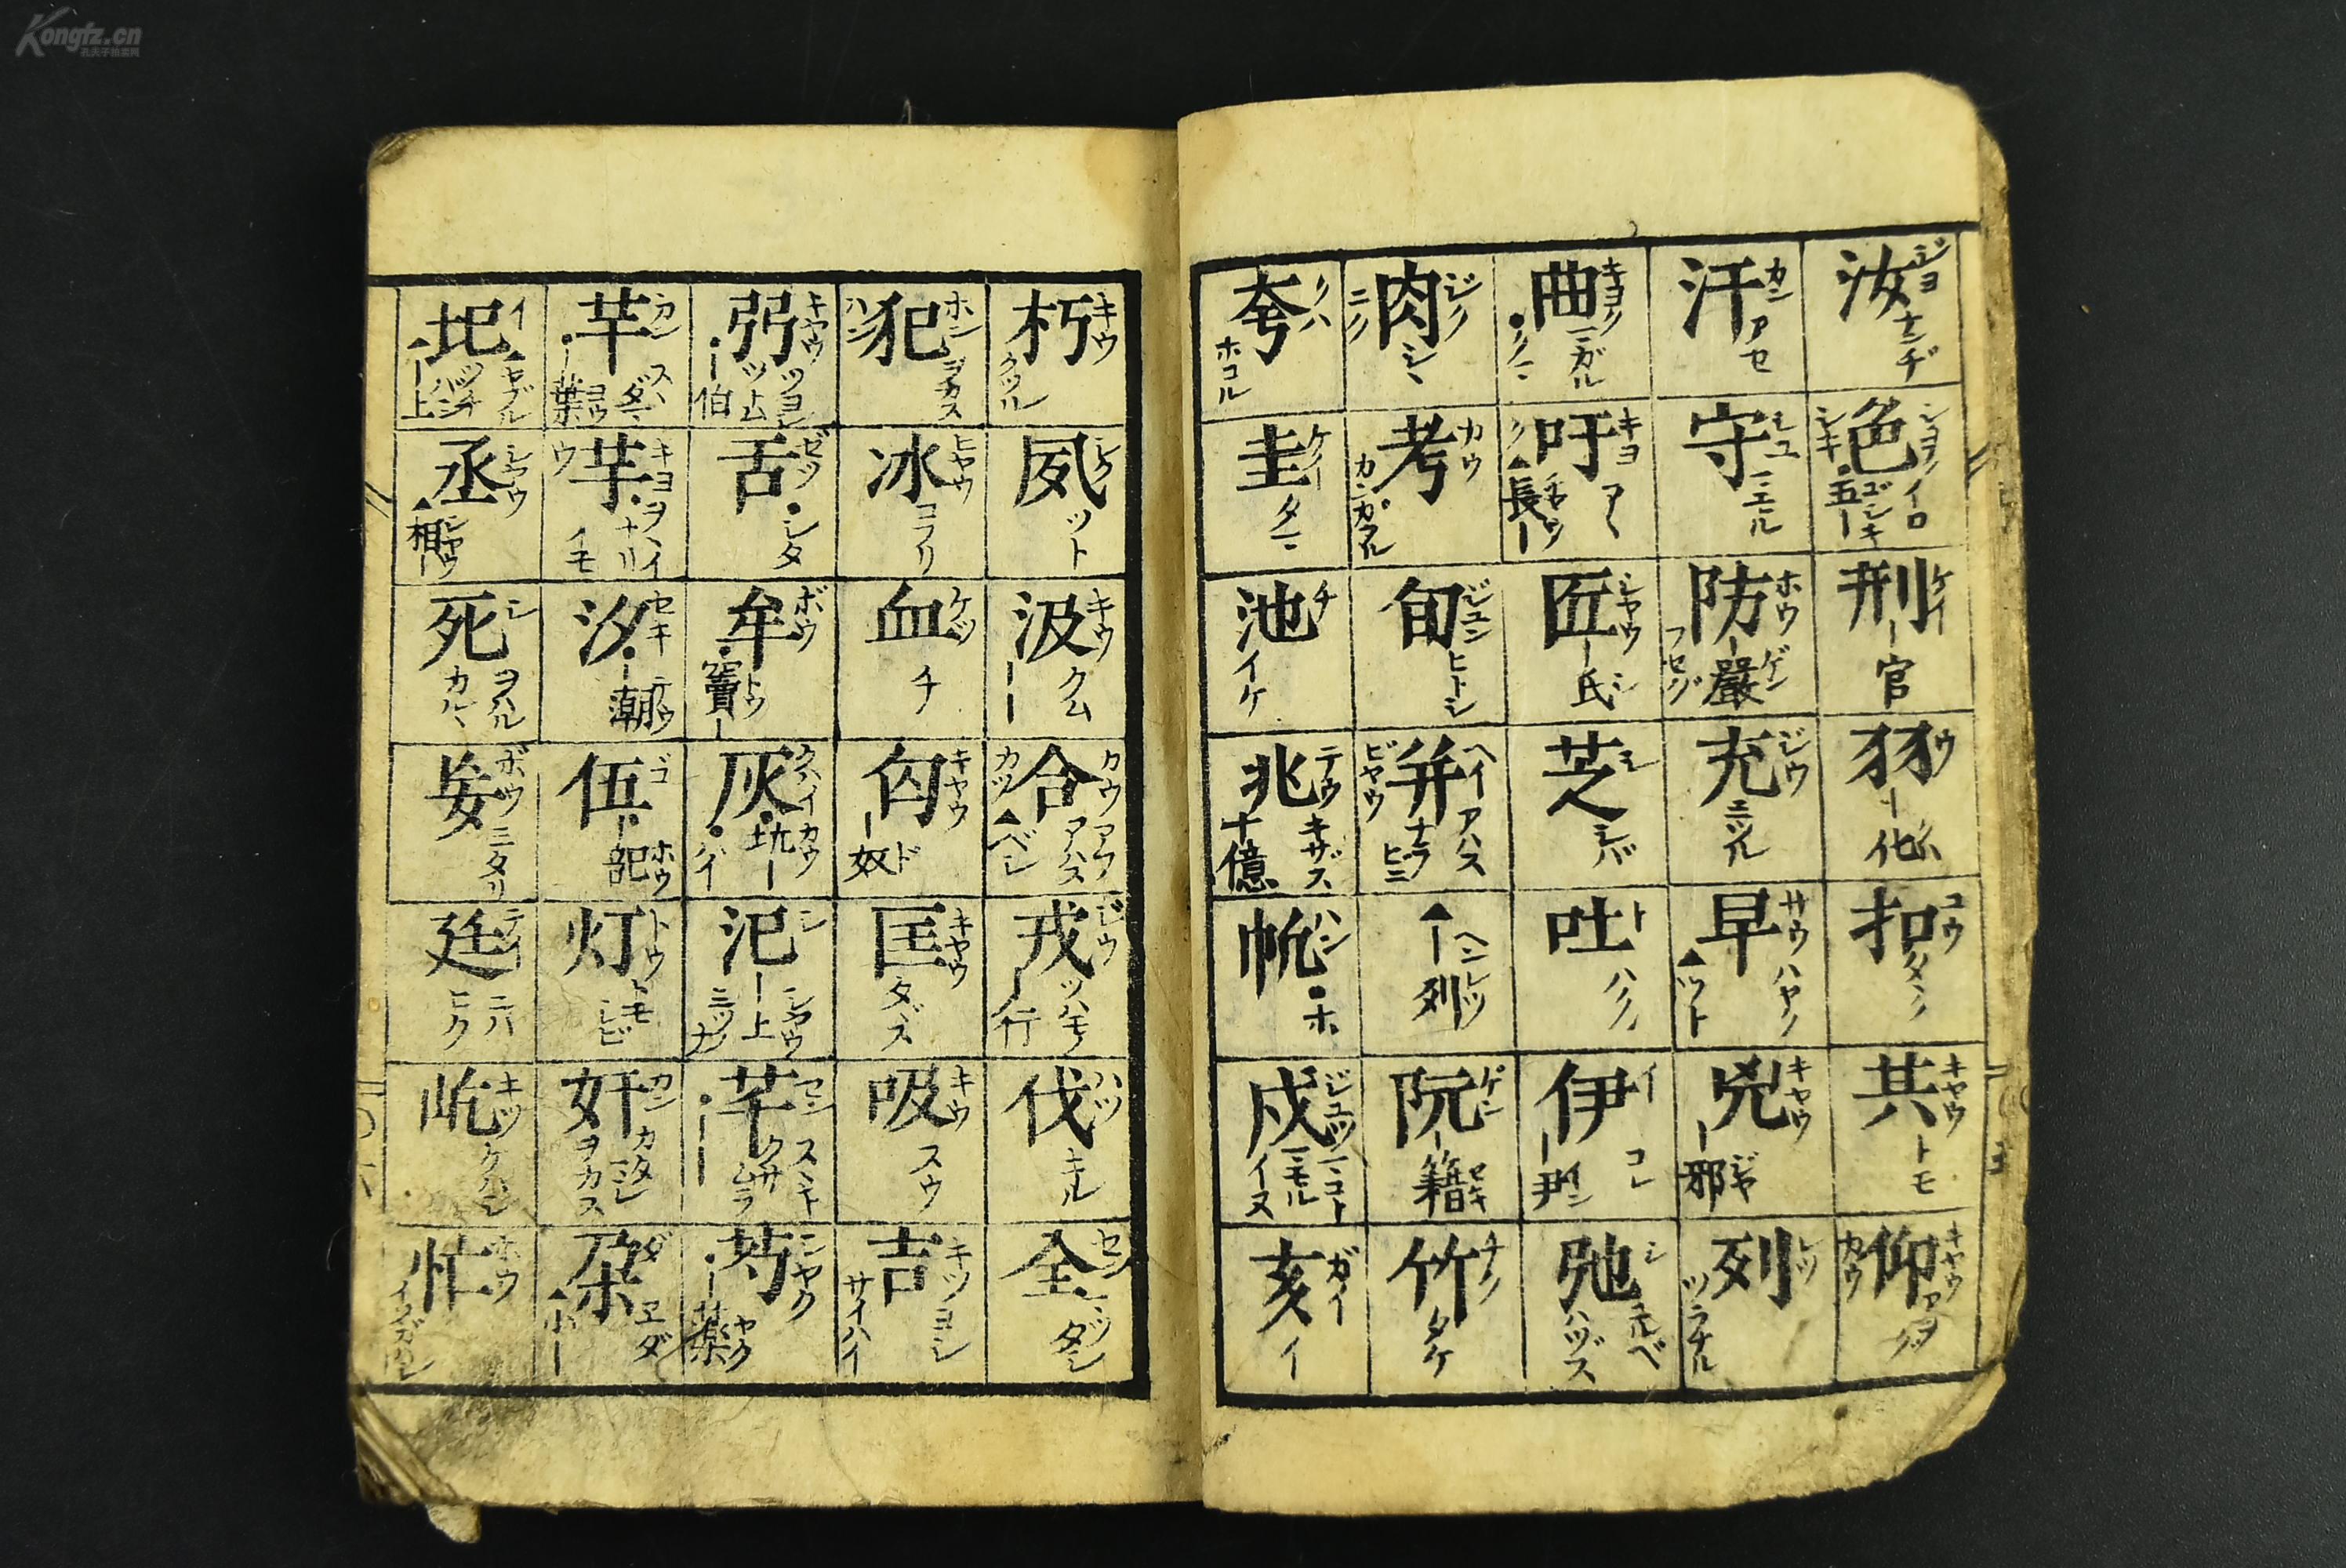 Kongfz.cn
孔夫子拍卖网
汝 ジヨ ナンヂ
色 シヨク シキ イロ 五ー ゴシキ
刑 ケイ ー官
羽 ウ ー化
扣 コウ
共 キヤウ トモ
仰 キヤウ カウ アヲグ
汗 カン アセ
守 シユ
防 ホウ ー嚴 ゲン フセグ
充 ジウ ミツル
早 サウ ハヤク
兇 キヤウ ー邪 ジヤ
列 レツ ツラナル
曲 キヨク マガル
吁 キヨ ク アヽ 長ー チヤウ
匠 シヤウ ー氏 シ
芝 シ シバ
吐 ト ハク
伊 イ コレ ー尹 イン
弛 シ ハヅス
肉 ジク ニク シヽ
考 カウ カンガフル
旬 ジユン ヒトシ
并 ヘイ ビヤウ アハス ナラヒニ
ー列 ヘンレツ
阮 ゲン ー籍 セキ
竹 チク タケ
夸 クハ ホコル
圭 ケイ タマ
池 チ イケ
兆 テウ キザス 十億
帆 ハン ホ
戍 ジユツ イヌ
亥 ガイ イ
朽 キウ クツル
夙 シク ツト
汲 キウ クム ーー
合 カウ カツ アフ アハス ベシ
戎 ジウ ツハモノ ー行
伐 ハツ キル
全 セン
犯 ホン ハン ヲカス
冰 ヒヤウ コフリ
血 ケツ チ
匈 キヤウ ー奴 ド
匡 キヤウ タヾス
吸 キウ スウ
吉 キツ ヨシ サイハイ
弱 キヤウ ツヨシ ツトム ー伯
舌 ゼツ シタ
牟 ボウ 竇ー トウ
灰 クハイ 坑ー カウ ハイ
汜 シ ー上 シヤウ ミツ
芊 セン クサムラ ーー
芍 シヤク ー藥 ヤク
芉 カン ー葉 ヨウ
芋 キヨ ウ イモ
汐 セキ ー潮 テウ
伍 ゴ ー部 ホウ
灯 トウ トモシビ
奸 カン カタマシ ヲカス
朶 ダ ヱダ
圯 イ ヤブル ツチハシ ー上
丞 シヤウ 相ー シヤウ
死 シ ヲハル カルヽ
妄 ボウ ミタリ
廷 テイ ニハ ヒク
屹 キツ ケハシ
忙 ホウ イソガハシ